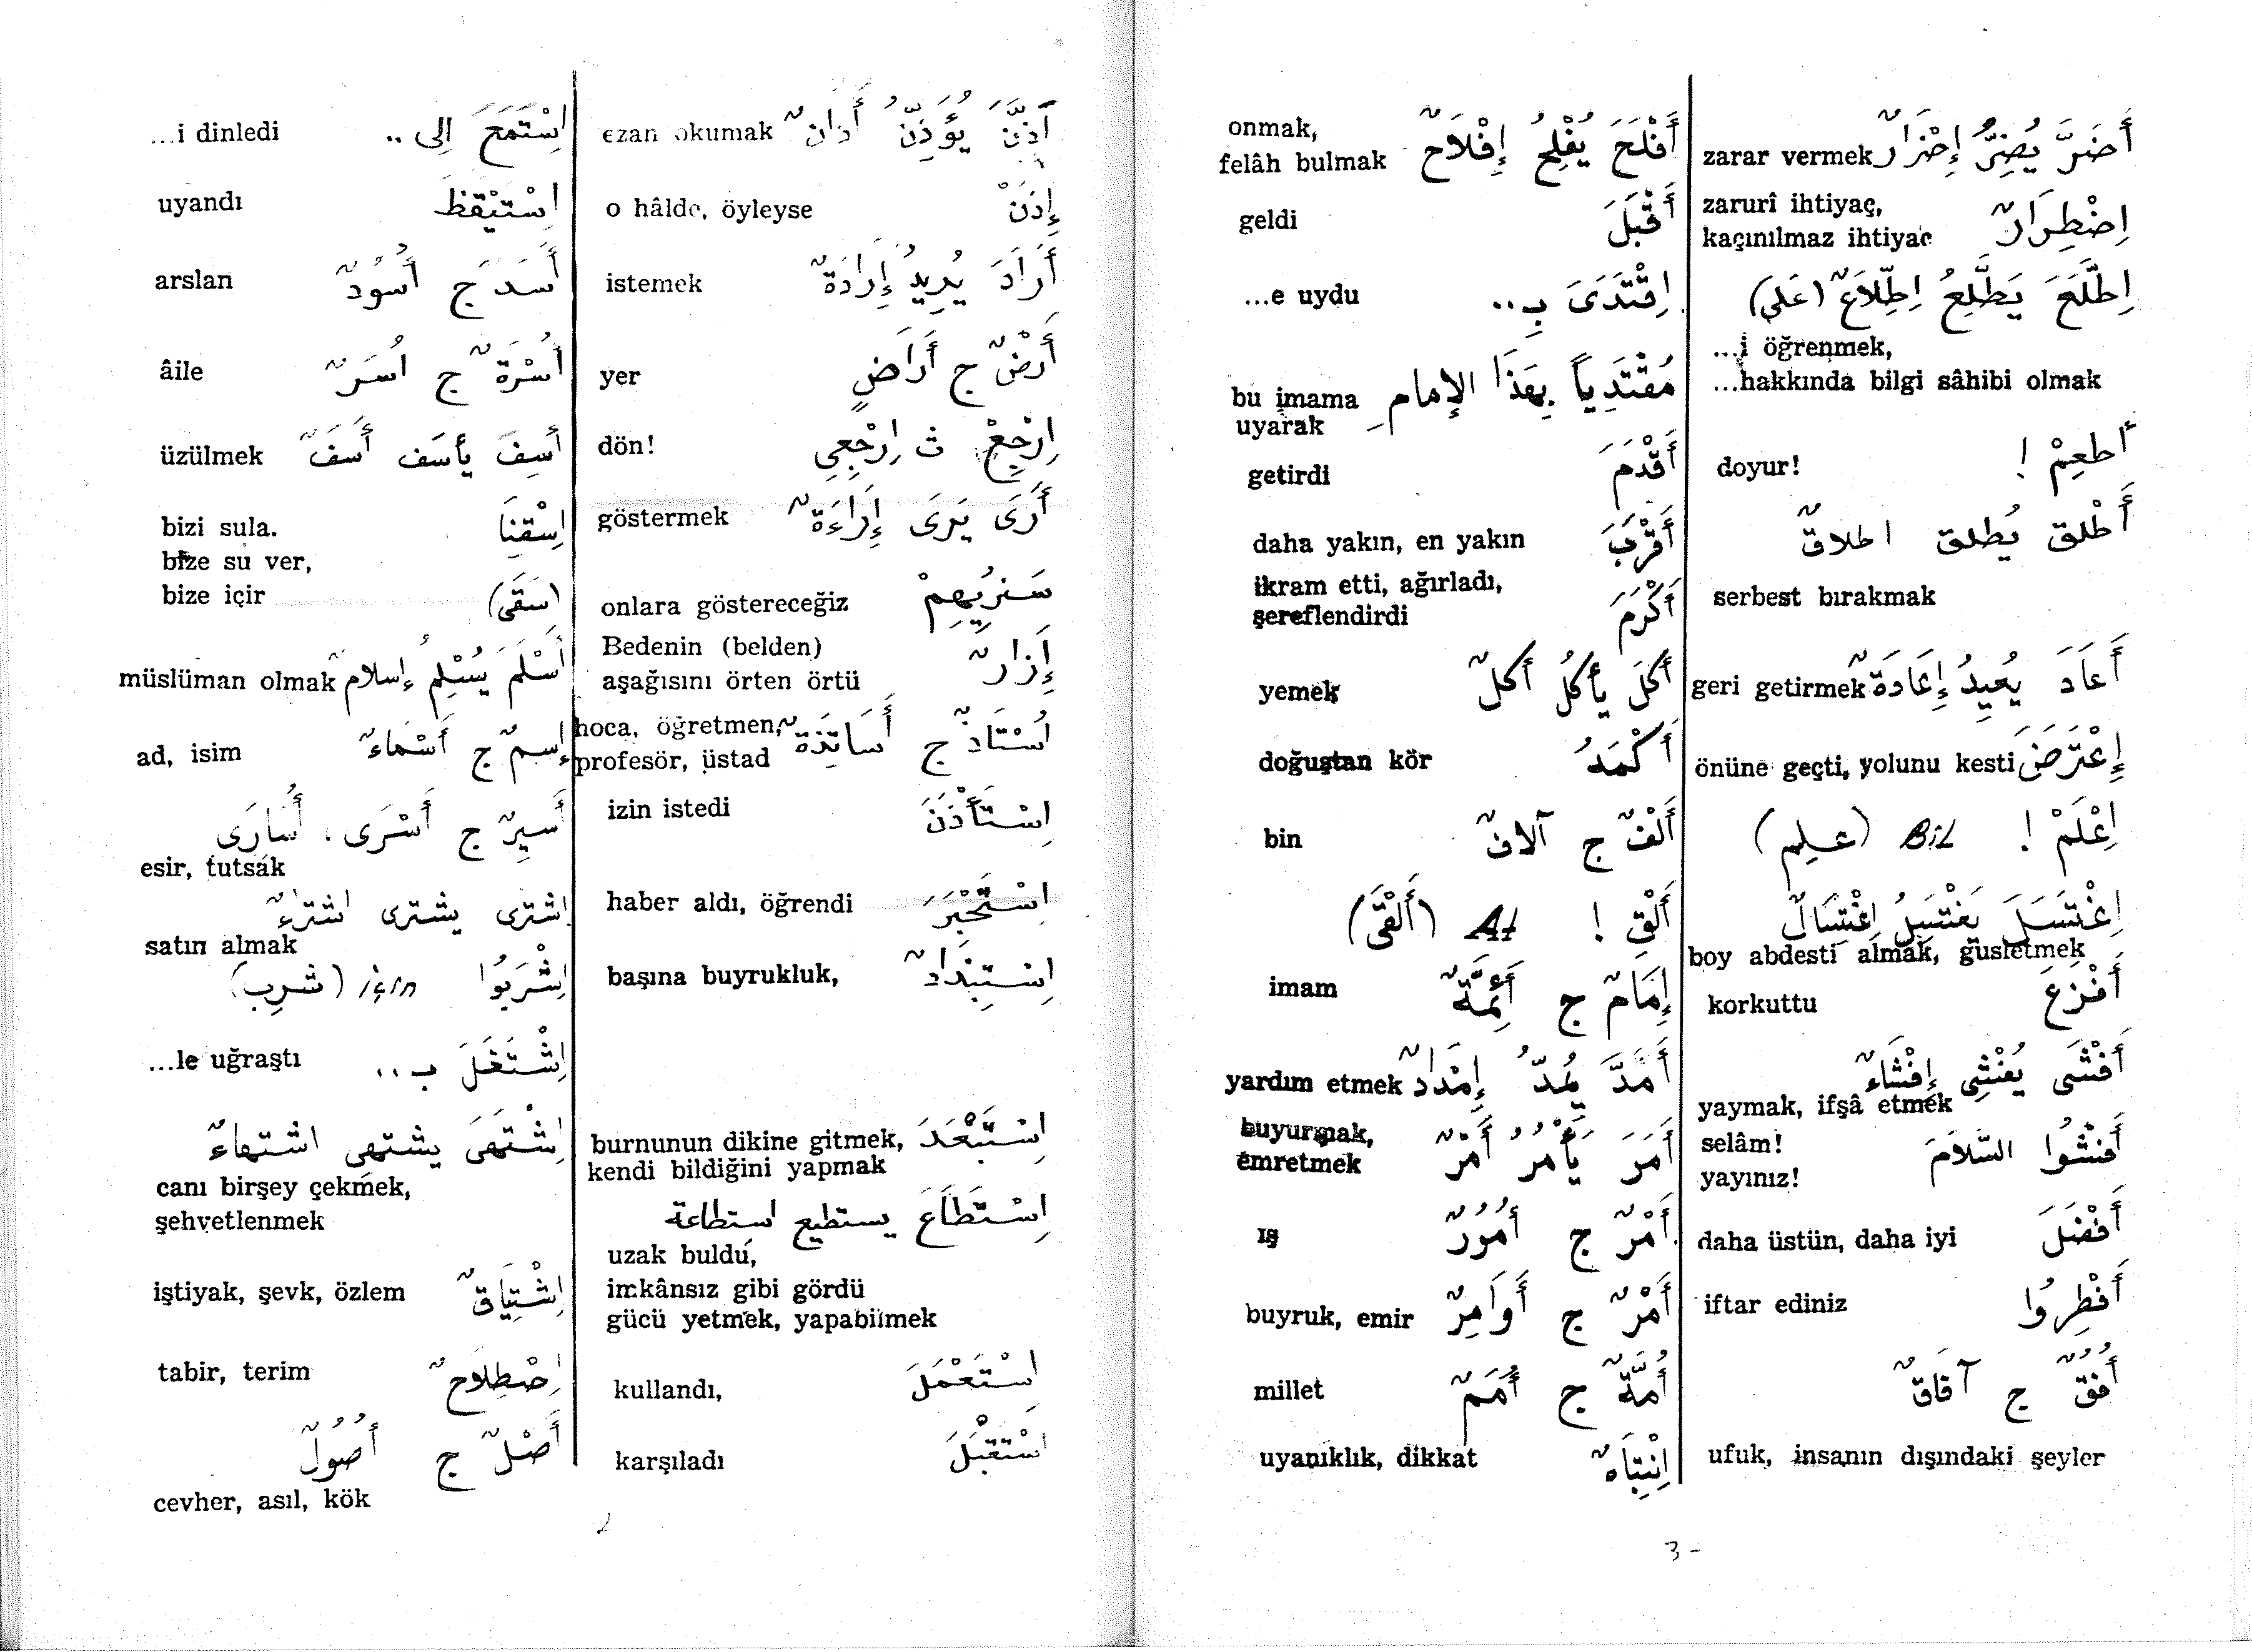 ezan okumak أَذَّنَ يُؤَذِّنُ أَذَانٌ
o hâlde, öyleyse إِذَنْ
istemek أَرَادَ يُرِيدُ إِرَادَةٌ
yer أَرْضٌ ج أَرَاضٍ
dön! اِرْجِعْ ث اِرْجِعِي
göstermek أَرَى يَرَى إِرَاءَةٌ
onlara göstereceğiz سَنُرِيهِمْ
Bedenin (belden) إِزَارٌ
aşağısını örten örtü
hoca, öğretmen, اُسْتَاذٌ ج أَسَاتِذَةٌ
profesör, üstad
izin istedi اِسْتَأْذَنَ
haber aldı, öğrendi اِسْتَخْبَرَ
başına buyrukluk, اِسْتِبْدَادٌ
burnunun dikine gitmek, اِسْتَبْعَدَ
kendi bildiğini yapmak
اِسْتَطَاعَ يستطيع استطاعة
uzak buldu,
imkânsız gibi gördü
gücü yetmek, yapabilmek
kullandı, اِسْتَعْمَلَ
karşıladı اِسْتَقْبَلَ
...i dinledi اِسْتَمَعَ اِلى ..
uyandı اِسْتَيْقَظَ
arslan أَسَدٌ ج أُسُودٌ
âile أُسْرَةٌ ج اُسَرٌ
üzülmek أَسِفَ يأسَف أَسَفٌ
bizi sula. اِسْقِنَا
bize su ver,
bize içir (سَقَى)
müslüman olmak أَسْلَمَ يُسْلِمُ إسلامٌ
ad, isim إِسمٌ ج أَسْمَاءٌ
أَسِيرٌ ج أَسْرَى ، أُسَارَى
esir, tutsak
اِشترى يشترى اشتراءٌ
satın almak
اِشْرَبُوا için (شَرِبَ)
...le uğraştı اِشْتَغَلَ بـ ..
اِشْتَهَى يشتهى اشتهاءٌ
canı birşey çekmek,
şehvetlenmek
iştiyak, şevk, özlem اِشْتِيَاقٌ
tabir, terim اِصْطِلَاحٌ
أَصْلٌ ج أُصُولٌ
cevher, asıl, kök
zarar vermek أَضَرَّ يُضِرُّ إِضْرَارٌ
zarurî ihtiyaç, اِضْطِرَارٌ
kaçınılmaz ihtiyaç
اِطَّلَعَ يَطَّلِعُ اِطِّلَاعٌ (عَلى)
...i öğrenmek,
...hakkında bilgi sâhibi olmak
doyur! أطعِمْ !
أَطْلق يُطلق اطلاقٌ
serbest bırakmak
geri getirmek أَعَادَ يُعِيدُ إِعَادَةٌ
önüne geçti, yolunu kesti إِعْتَرَضَ
اِعْلَمْ ! Bil (عـلِم)
اِغْتَسَلَ يَغْتَسِلُ اِغْتِسَالٌ
boy abdesti almak, gusletmek
korkuttu أَفْزَعَ
أَفْشَى يُفْشِى إِفْشَاءٌ
yaymak, ifşâ etmek
selâm! أَفْشُوا السَّلَامَ
yayınız!
daha üstün, daha iyi أَفْضَلَ
iftar ediniz أَفْطِرُوا
أُفُقٌ ج آفَاقٌ
ufuk, insanın dışındaki şeyler
onmak,
felâh bulmak أَفْلَحَ يُفْلِحُ إِفْلَاحٌ
geldi أَقْبَلَ
...e uydu اِقْتَدَىَ بِ..
bu imama مُقْتَدِياً بِهَذَا الإمامِ
uyarak
getirdi أَقْدَمَ
daha yakın, en yakın أَقْرَبَ
ikram etti, ağırladı, أَكْرَمَ
şereflendirdi
yemek أَكَلَ يأكُلُ أكلٌ
doğuştan kör أَكْمَدُ
bin أَلْفٌ ج آلافٌ
أَلْقِ ! At (أَلْقَى)
imam إِمَامٌ ج أَئِمَّةٌ
yardım etmek أَمَدَّ يُمِدُّ إِمْدَادٌ
buyurmak, أَمَرَ يَأْمُرُ أَمْرٌ
emretmek
iş أَمْرٌ ج أُمُورٌ
buyruk, emir أَمْرٌ ج أَوَامِرٌ
millet أُمَّةٌ ج أُمَمٌ
uyanıklık, dikkat اِنْتِبَاهٌ
3 -